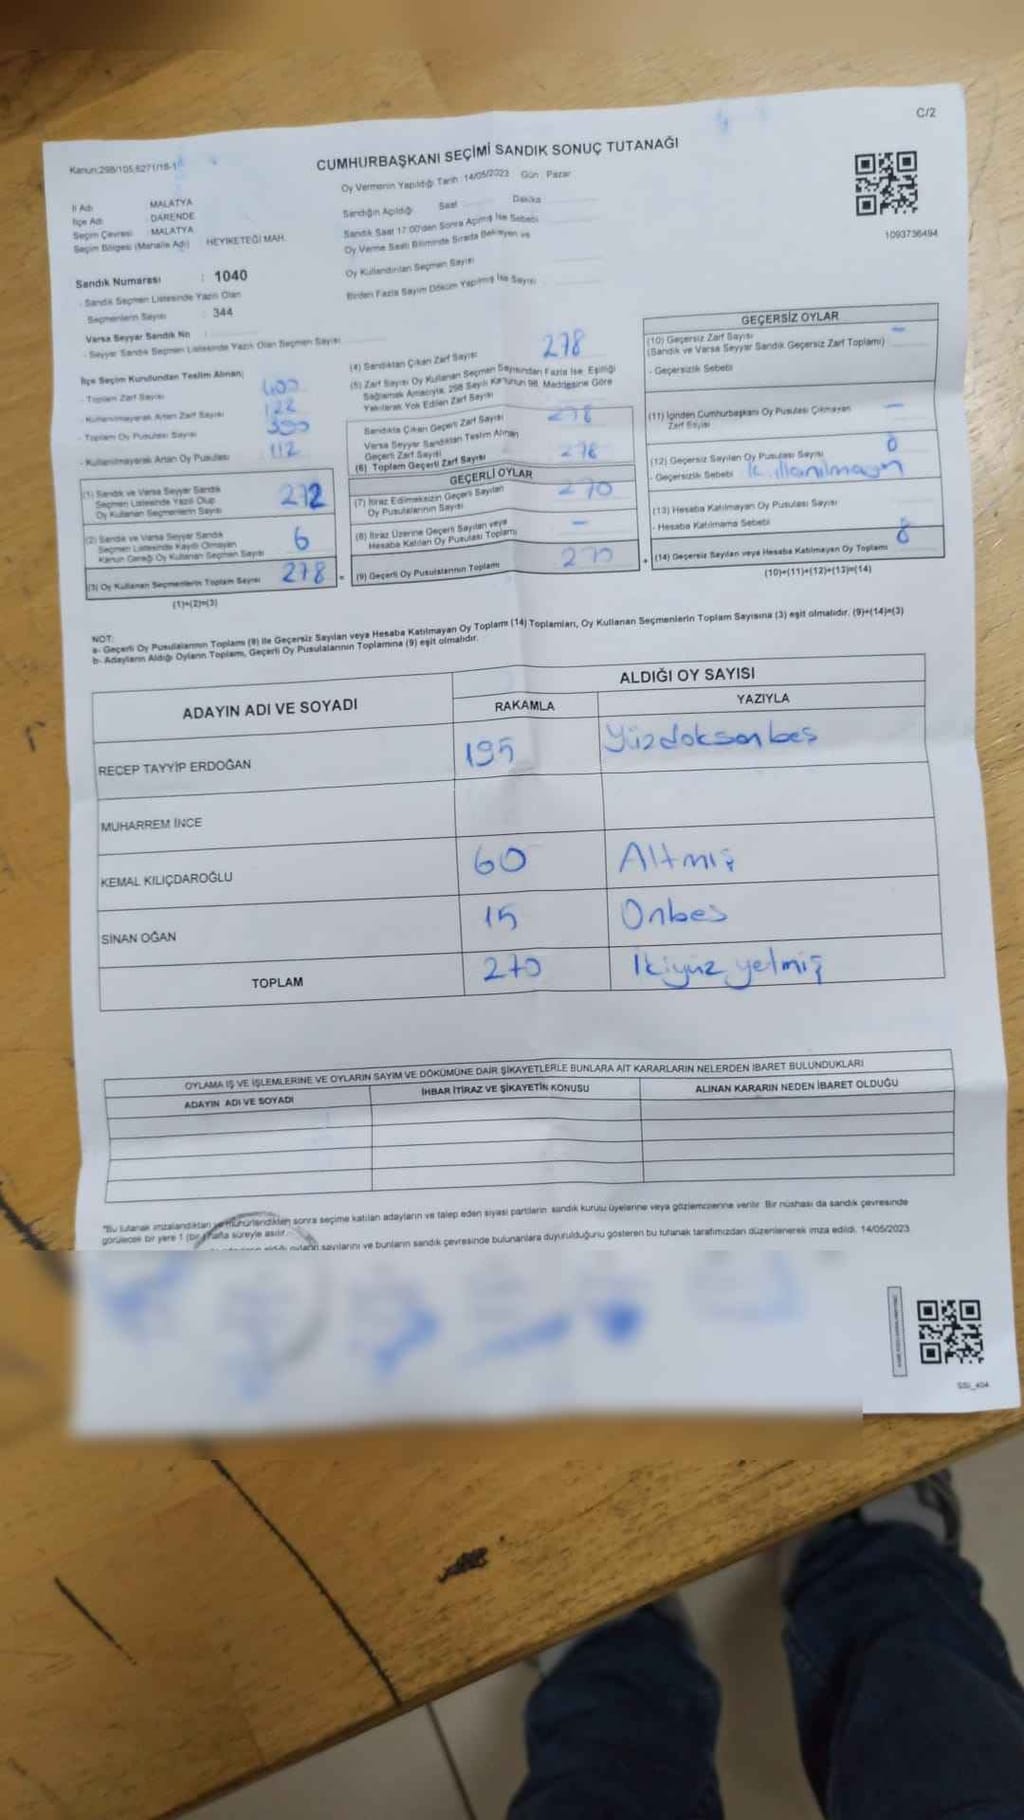 C/2
Kanun:298/105,6271/18-1
CUMHURBAŞKANI SEÇİMİ SANDIK SONUÇ TUTANAĞI
Oy Vermenin Yapıldığı Tarih : 14/05/2023 Gün : Pazar
İl Adı : MALATYA
İlçe Adı : DARENDE
Seçim Çevresi : MALATYA
Seçim Bölgesi (Mahalle Adı) : HEYİKETEĞİ MAH.
Sandığın Açıldığı Saat Dakika
Sandık Saat 17:00'den Sonra Açılmış İse Sebebi
Oy Verme Saati Bitiminde Sırada Bekleyen ve
Oy Kullandırılan Seçmen Sayısı
Birden Fazla Sayım Döküm Yapılmış İse Sayısı
1093736494
Sandık Numarası : 1040
- Sandık Seçmen Listesinde Yazılı Olan
Seçmenlerin Sayısı : 344
Varsa Seyyar Sandık No :
- Seyyar Sandık Seçmen Listesinde Yazılı Olan Seçmen Sayısı
İlçe Seçim Kurulundan Teslim Alınan;
- Toplam Zarf Sayısı 400
- Kullanılmayarak Artan Zarf Sayısı 122
- Toplam Oy Pusulası Sayısı
- Kullanılmayarak Artan Oy Pusulası 112
(1) Sandık ve Varsa Seyyar Sandık
Seçmen Listesinde Yazılı Olup
Oy Kullanan Seçmenlerin Sayısı 272
(2) Sandık ve Varsa Seyyar Sandık
Seçmen Listesinde Kayıtlı Olmayan
Kanun Gereği Oy Kullanan Seçmen Sayısı 6
(3) Oy Kullanan Seçmenlerin Toplam Sayısı 278
(1)+(2)=(3)
(4) Sandıktan Çıkan Zarf Sayısı 278
(5) Zarf Sayısı Oy Kullanan Seçmen Sayısından Fazla İse, Eşitliği
Sağlamak Amacıyla, 298 Sayılı Kanunun 98. Maddesine Göre
Yakılarak Yok Edilen Zarf Sayısı
Sandıkta Çıkan Geçerli Zarf Sayısı 278
Varsa Seyyar Sandıktan Teslim Alınan
Geçerli Zarf Sayısı
(6) Toplam Geçerli Zarf Sayısı 278
GEÇERLİ OYLAR
(7) İtiraz Edilmeksizin Geçerli Sayılan
Oy Pusulasının Sayısı 270
(8) İtiraz Üzerine Geçerli Sayılan veya
Hesaba Katılan Oy Pusulası Toplamı -
(9) Geçerli Oy Pusulalarının Toplamı 270
GEÇERSİZ OYLAR
(10) Geçersiz Zarf Sayısı -
(Sandık ve Varsa Seyyar Sandık Geçersiz Zarf Toplamı)
- Geçersizlik Sebebi
(11) İçinden Cumhurbaşkanı Oy Pusulası Çıkmayan
Zarf Sayısı -
(12) Geçersiz Sayılan Oy Pusulası Sayısı
- Geçersizlik Sebebi
(13) Hesaba Katılmayan Oy Pusulası Sayısı
- Hesaba Katılmama Sebebi
(14) Geçersiz Sayılan veya Hesaba Katılmayan Oy Toplamı 8
(10)+(11)+(12)+(13)=(14)
NOT:
a- Geçerli Oy Pusulalarının Toplamı (9) ile Geçersiz Sayılan veya Hesaba Katılmayan Oy Toplamı (14) Toplamları, Oy Kullanan Seçmenlerin Toplam Sayısına (3) eşit olmalıdır. (9)+(14)=(3)
b- Adayların Aldığı Oyların Toplamı, Geçerli Oy Pusulalarının Toplamına (9) eşit olmalıdır.
ADAYIN ADI VE SOYADI
ALDIĞI OY SAYISI
RAKAMLA YAZIYLA
RECEP TAYYİP ERDOĞAN 195 Yüzdoksanbeş
MUHARREM İNCE
KEMAL KILIÇDAROĞLU 60 Altmış
SİNAN OĞAN 15 Onbeş
TOPLAM 270 İkiyüz yetmiş
OYLAMA İŞ VE İŞLEMLERİNE VE OYLARIN SAYIM VE DÖKÜMÜNE DAİR ŞİKAYETLERLE BUNLARA AİT KARARLARIN NELERDEN İBARET BULUNDUKLARI
ADAYIN ADI VE SOYADI İHBAR İTİRAZ VE ŞİKAYETİN KONUSU ALINAN KARARIN NEDEN İBARET OLDUĞU
"Bu tutanak imzalandıktan ve mühürlendikten sonra seçime katılan adayların ve talep eden siyasi partilerin sandık kurulu üyelerine veya gözlemcilerine verilir. Bir nüshası da sandık çevresinde
görülecek bir yere 1 (bir) hafta süreyle asılır.
sayılarını ve bunların sandık çevresinde bulunanlara duyurulduğunu gösteren bu tutanak tarafımızdan düzenlenerek imza edildi. 14/05/2023